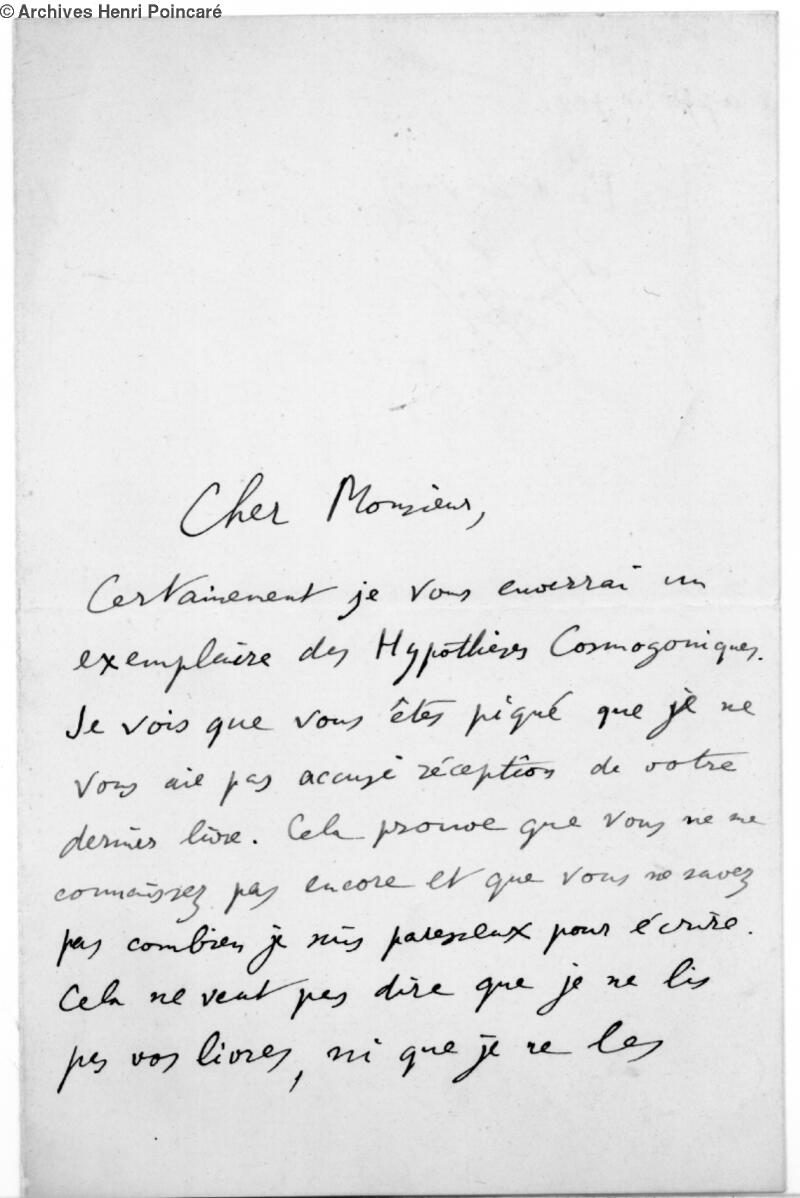 © Archives Henri Poincaré
Cher Monsieur,
Certainement je vous enverrai un
exemplaire des Hypothèses Cosmogoniques.
Je vois que vous êtes piqué que je ne
vous aie pas accusé réception de votre
dernier livre. Cela prouve que vous ne me
connaissez pas encore et que vous ne savez
pas combien je suis paresseux pour écrire.
Cela ne veut pas dire que je ne lis
pas vos livres, ni que je ne les